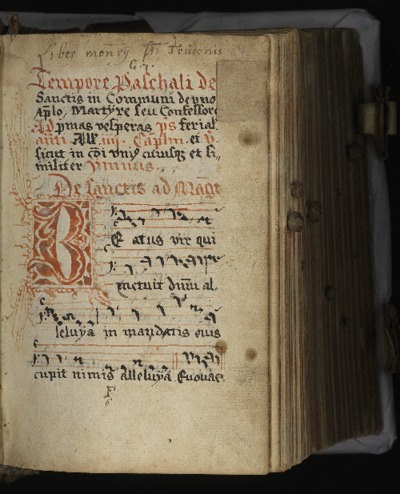 Liber
G 7.
Tempore Paschali de
Sanctis in Communi de vno
aplo, Martyre seu Confessore
Ad pmas vesperas ps ferial
anti Alle. iiij. Caplm. et V.
sicut in coi vniꝰ cuiusqꝫ et si
militer Ymnus.
De sanctis ad Magt
BE atus vir qui
timuit dnm al
leluya in mandatis eius
cupit nimis alleluya Euouae
F
6